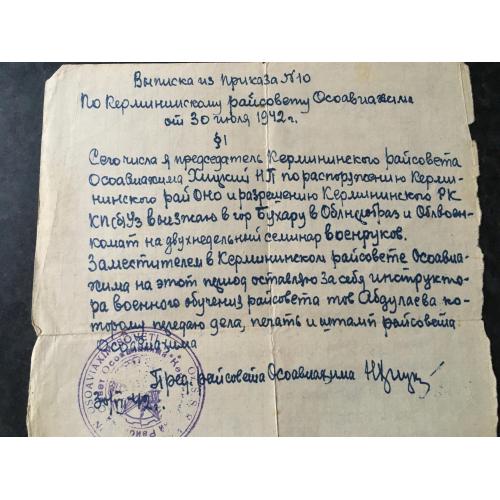 Выписка из Приказа №10
По Керминискому райсовету Осоавиахима
от 30 июля 1942 г.
§1
Сего числа я председатель Керминиского райсовета
Осоавиахима Хицкий Н.П по распоряжению Керми-
нинского рай Оно и разрешению Керминиского РК
КП(б)Уз выезжаю в гор Бухару в Облнаробраз и Облвоен-
комат на двухнедельный семинар военруков.
Заместителем в Керминиском райсовете Осоавиа-
хима на этот период оставляю за себя инструкто-
ра военного обучения райсовета тов Абдулаева ко-
торому передаю дела, печать и штамп райсовета
Осоавиахима
Пред. райсовета Осоавиахима
OSOAVIAXIM